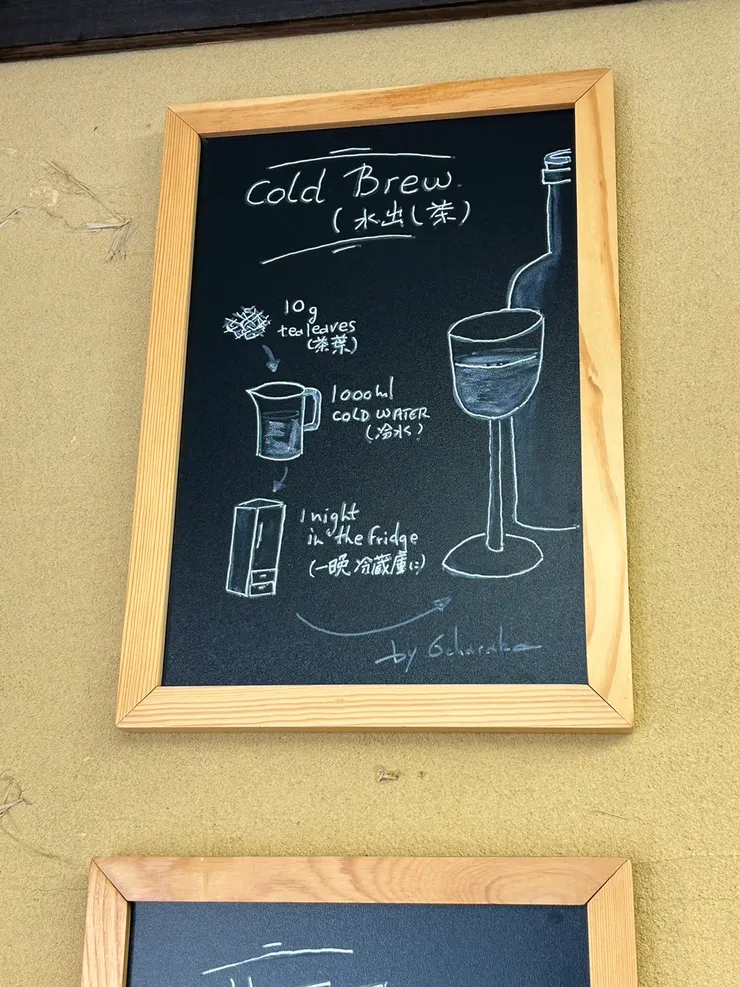 Cold Brew
(水出し茶)
10g
tea leaves
(茶葉)
1000ml
COLD WATER
(冷水)
1 night
in the fridge
(一晩冷蔵庫に)
by